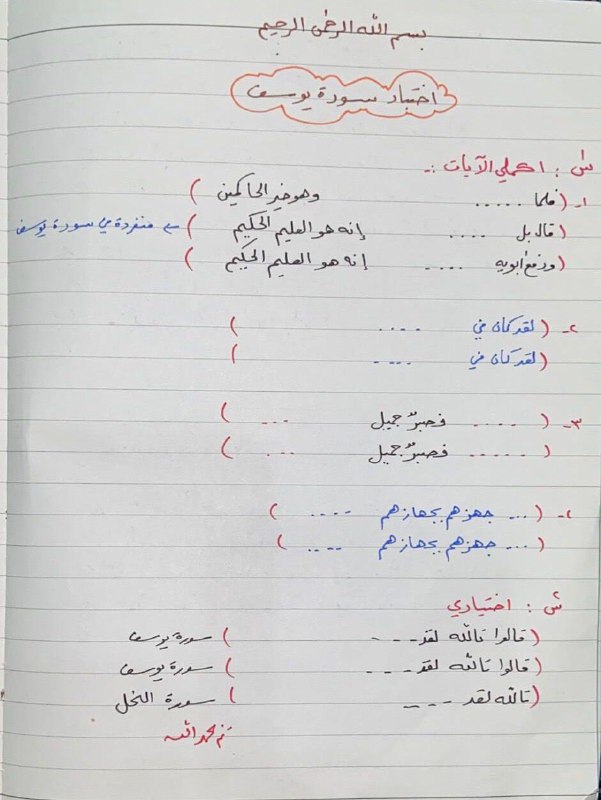 بسم الله الرحمن الرحيم
اختبار سورة يوسف
س١ : اكملي الآيات :-
١- ( فلما ..... وهو خير الحاكمين )
( قال بل .... إنه هو العليم الحكيم ) ← منفردة في سورة يوسف
( ورفع أبويه .... إنه هو العليم الحكيم )
٢- ( لقد كان في .... )
( لقد كان في .... )
٣- ( .... فصبرٌ جميل ... )
( ..... فصبرٌ جميل ... )
٤- ( ... جهزهم بجهازهم .... )
( ... جهزهم بجهازهم .... )
س : اختياري
( قالوا تالله لقد .... ) سورة يوسف
( قالوا تالله لقد .... ) سورة يوسف
( تالله لقد .... ) سورة النحل
تم بحمد الله